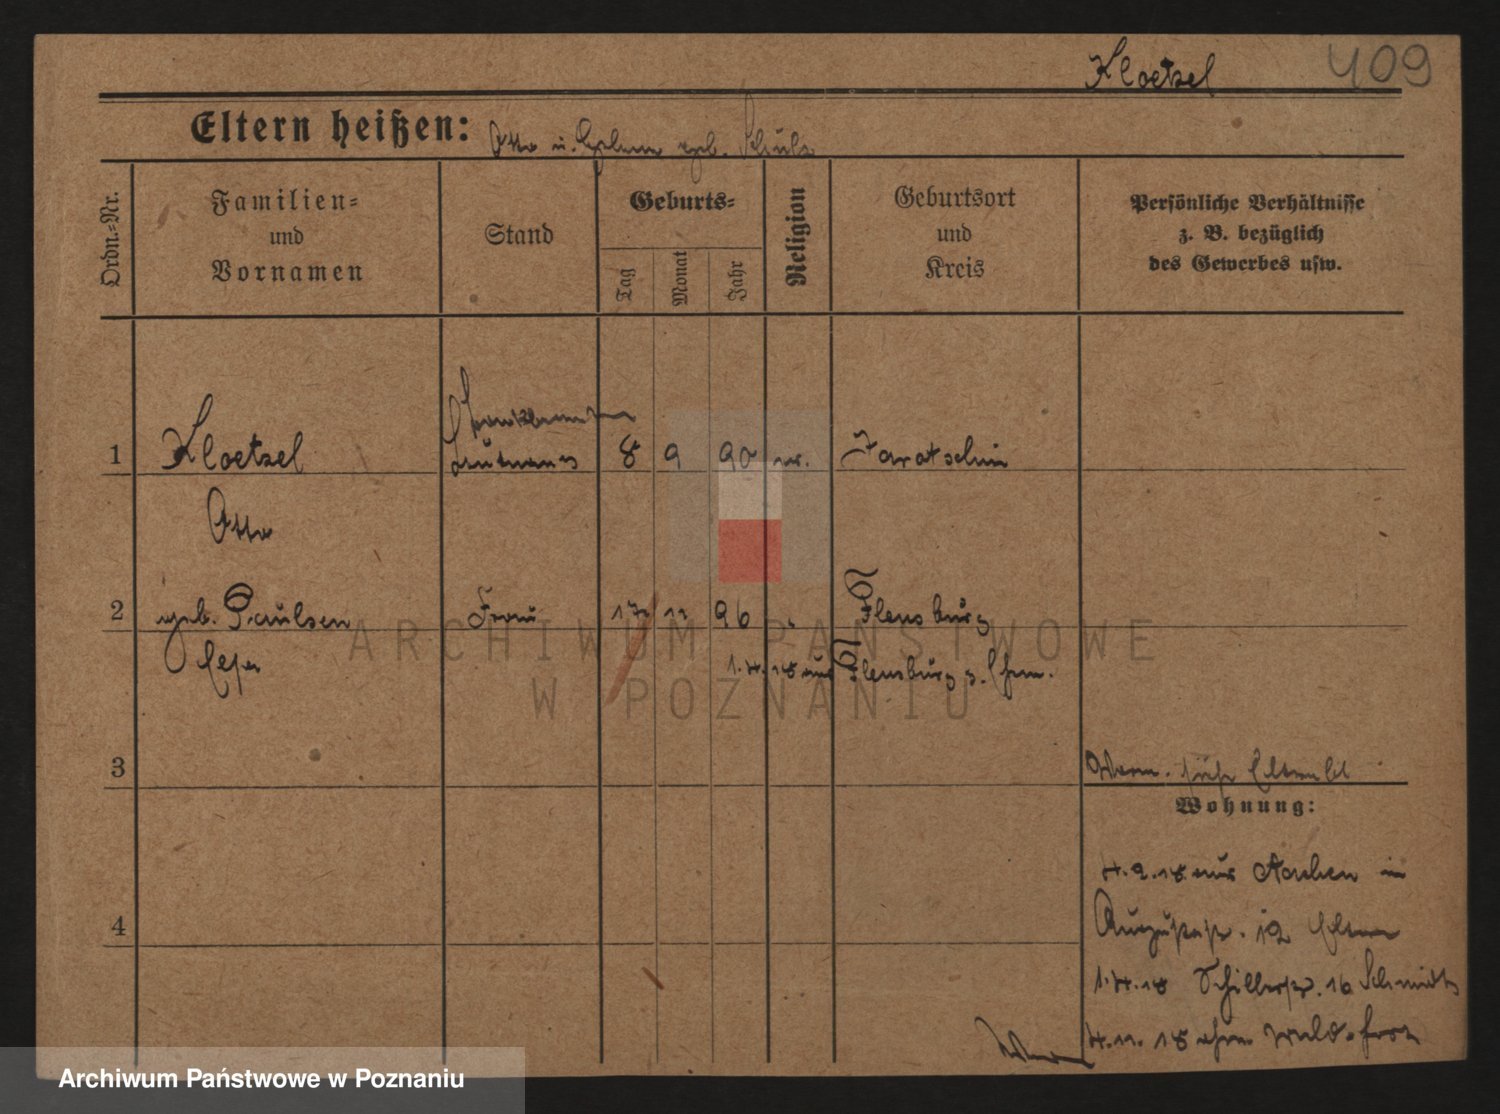 Kloetzel 409
Eltern heißen: Otto u. geb. Schulz
Ordn.-Nr.
Familien-
und
Vornamen
Stand
Geburts-
Tag
Monat
Jahr
Religion
Geburtsort
und
Kreis
Persönliche Verhältnisse
z. B. bezüglich
des Gewerbes usw.
1 Kloetzel 8 9 90 Jarotschin
Otto
2 geb. Paulsen Frau 17 11 96 " Flensburg
1.4.18 aus Flensburg z. Ehem.
3
Wohnung:
4.2.18 aus Aachen in
Augustastr. 12 Eltern
4
1.4.18 Schillerstr. 16 Schmidt
4.11.18
ARCHIWUM PAŃSTWOWE
W POZNANIU
Archiwum Państwowe w Poznaniu